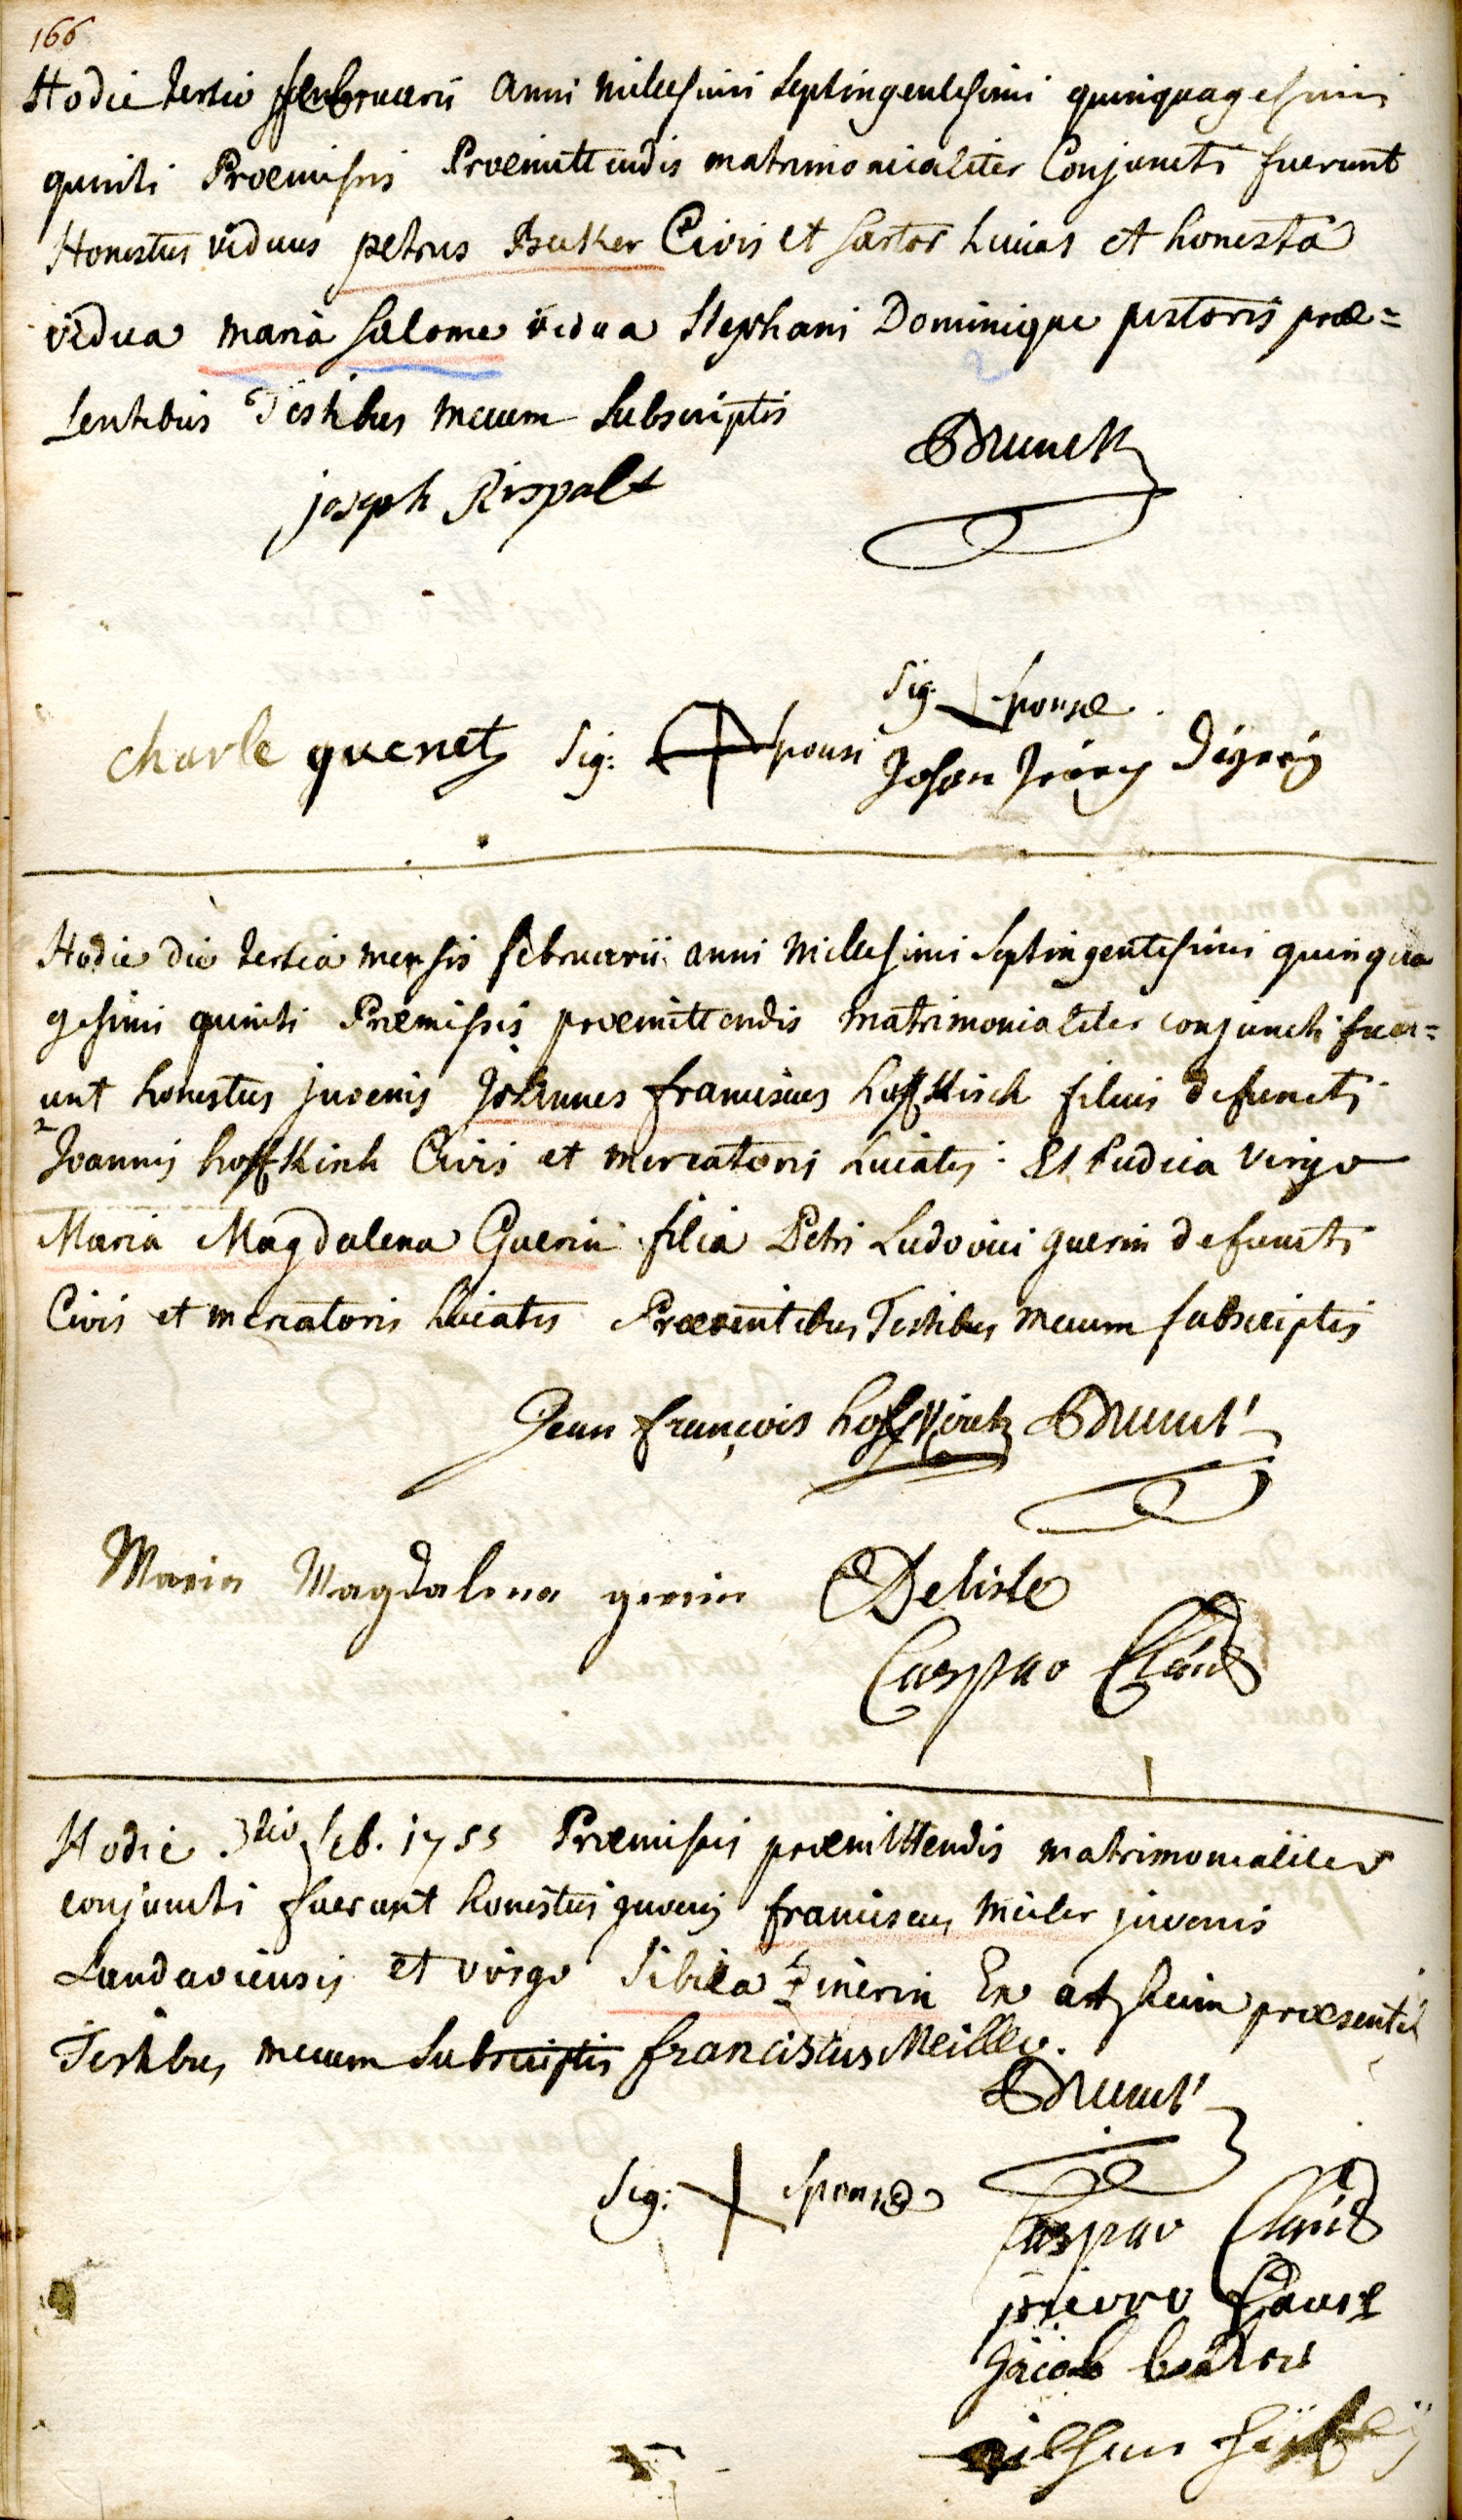 166
Hodie tertio februarii anni millesimi septingentesimi quinquagesimi
quinti Præmissis Præmittendis matrimonialiter Conjuncti fuerunt
Honestus viduus petrus Beuker Civis et sartor huias et honesta
vidua maria salome vidua Stephani Dominique pistoris præ=
sentibus Testibus mecum subscriptis
joseph Rispalt
Brunck
Sig. sponsæ
charle quenet Sig: sponsi
Hodie die tertia mensis februarii anni millesimi septingentesimi quinqua
gesimi quinti Præmissis præmittendis matrimonialiter conjuncti fuer=
unt honestus juvenis Johannes franciscus hoffkirch filius defuncti
Joannis hoffkirch Civis et mercatoris huiatis. Et Pudica virgo
Maria Magdalena Guerin filia Petri Ludovici guerin defuncti
Civis et mercatoris huiatis Præsentibus Testibus mecum subscriptis
Jean françois hoffkirch Brunck
Maria Magdalena gerin Delisle
Caspar
Hodie 3tio feb. 1755 Præmissis præmittendis matrimonialiter
conjuncti fuerunt honestus juvenis franciscus meiler juvenis
Landaviensis et virgo Sibilla Zinerin Ex præsentib
Testibus mecum subscriptis franciscus Meiller.
Brunck
Sig: sponsæ
Caspar
Jacob